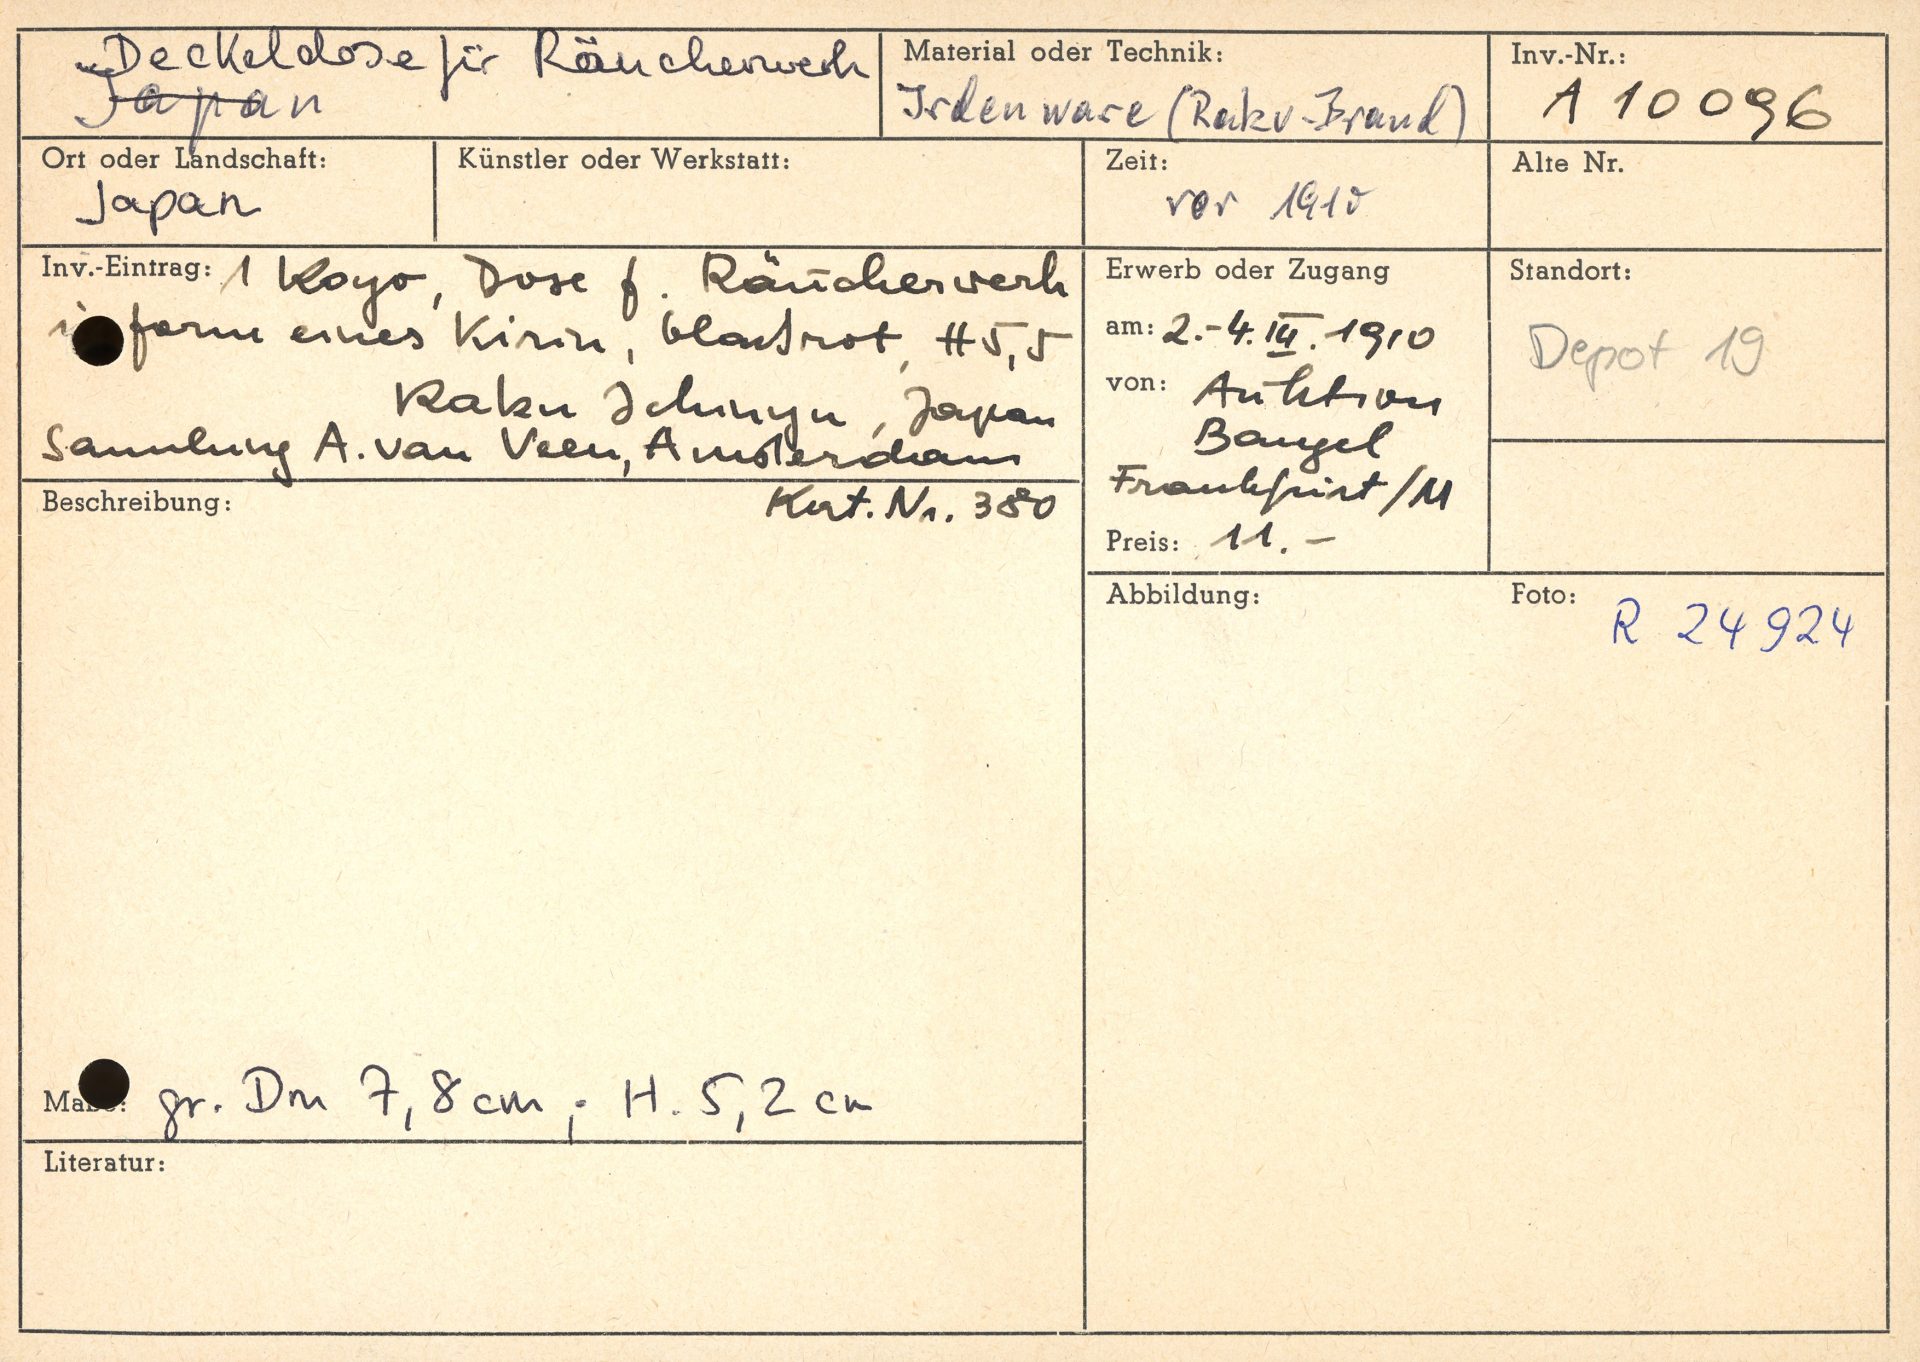 Deckeldose für Räucherwerk
Japan
Material oder Technik:
Irdenware (Raku-Brand)
Inv.-Nr.:
A 10096
Ort oder Landschaft:
Japan
Künstler oder Werkstatt:
Zeit:
vor 1910
Alte Nr.
Inv.-Eintrag: 1 Kogo, Dose f. Räucherwerk
form eines Kirin, blassrot, H 5,5
Raku Ichinyu, Japan
Sammlung A. van Veen, Amsterdam
Kat. Nr. 380
Erwerb oder Zugang
am: 2.-4. III. 1910
von: Auktion
Bangel
Frankfurt/M
Preis: 11.-
Standort:
Depot 19
Beschreibung:
Abbildung:
Foto: R 24924
Maße: gr. Dm 7,8 cm; H. 5,2 cm
Literatur: